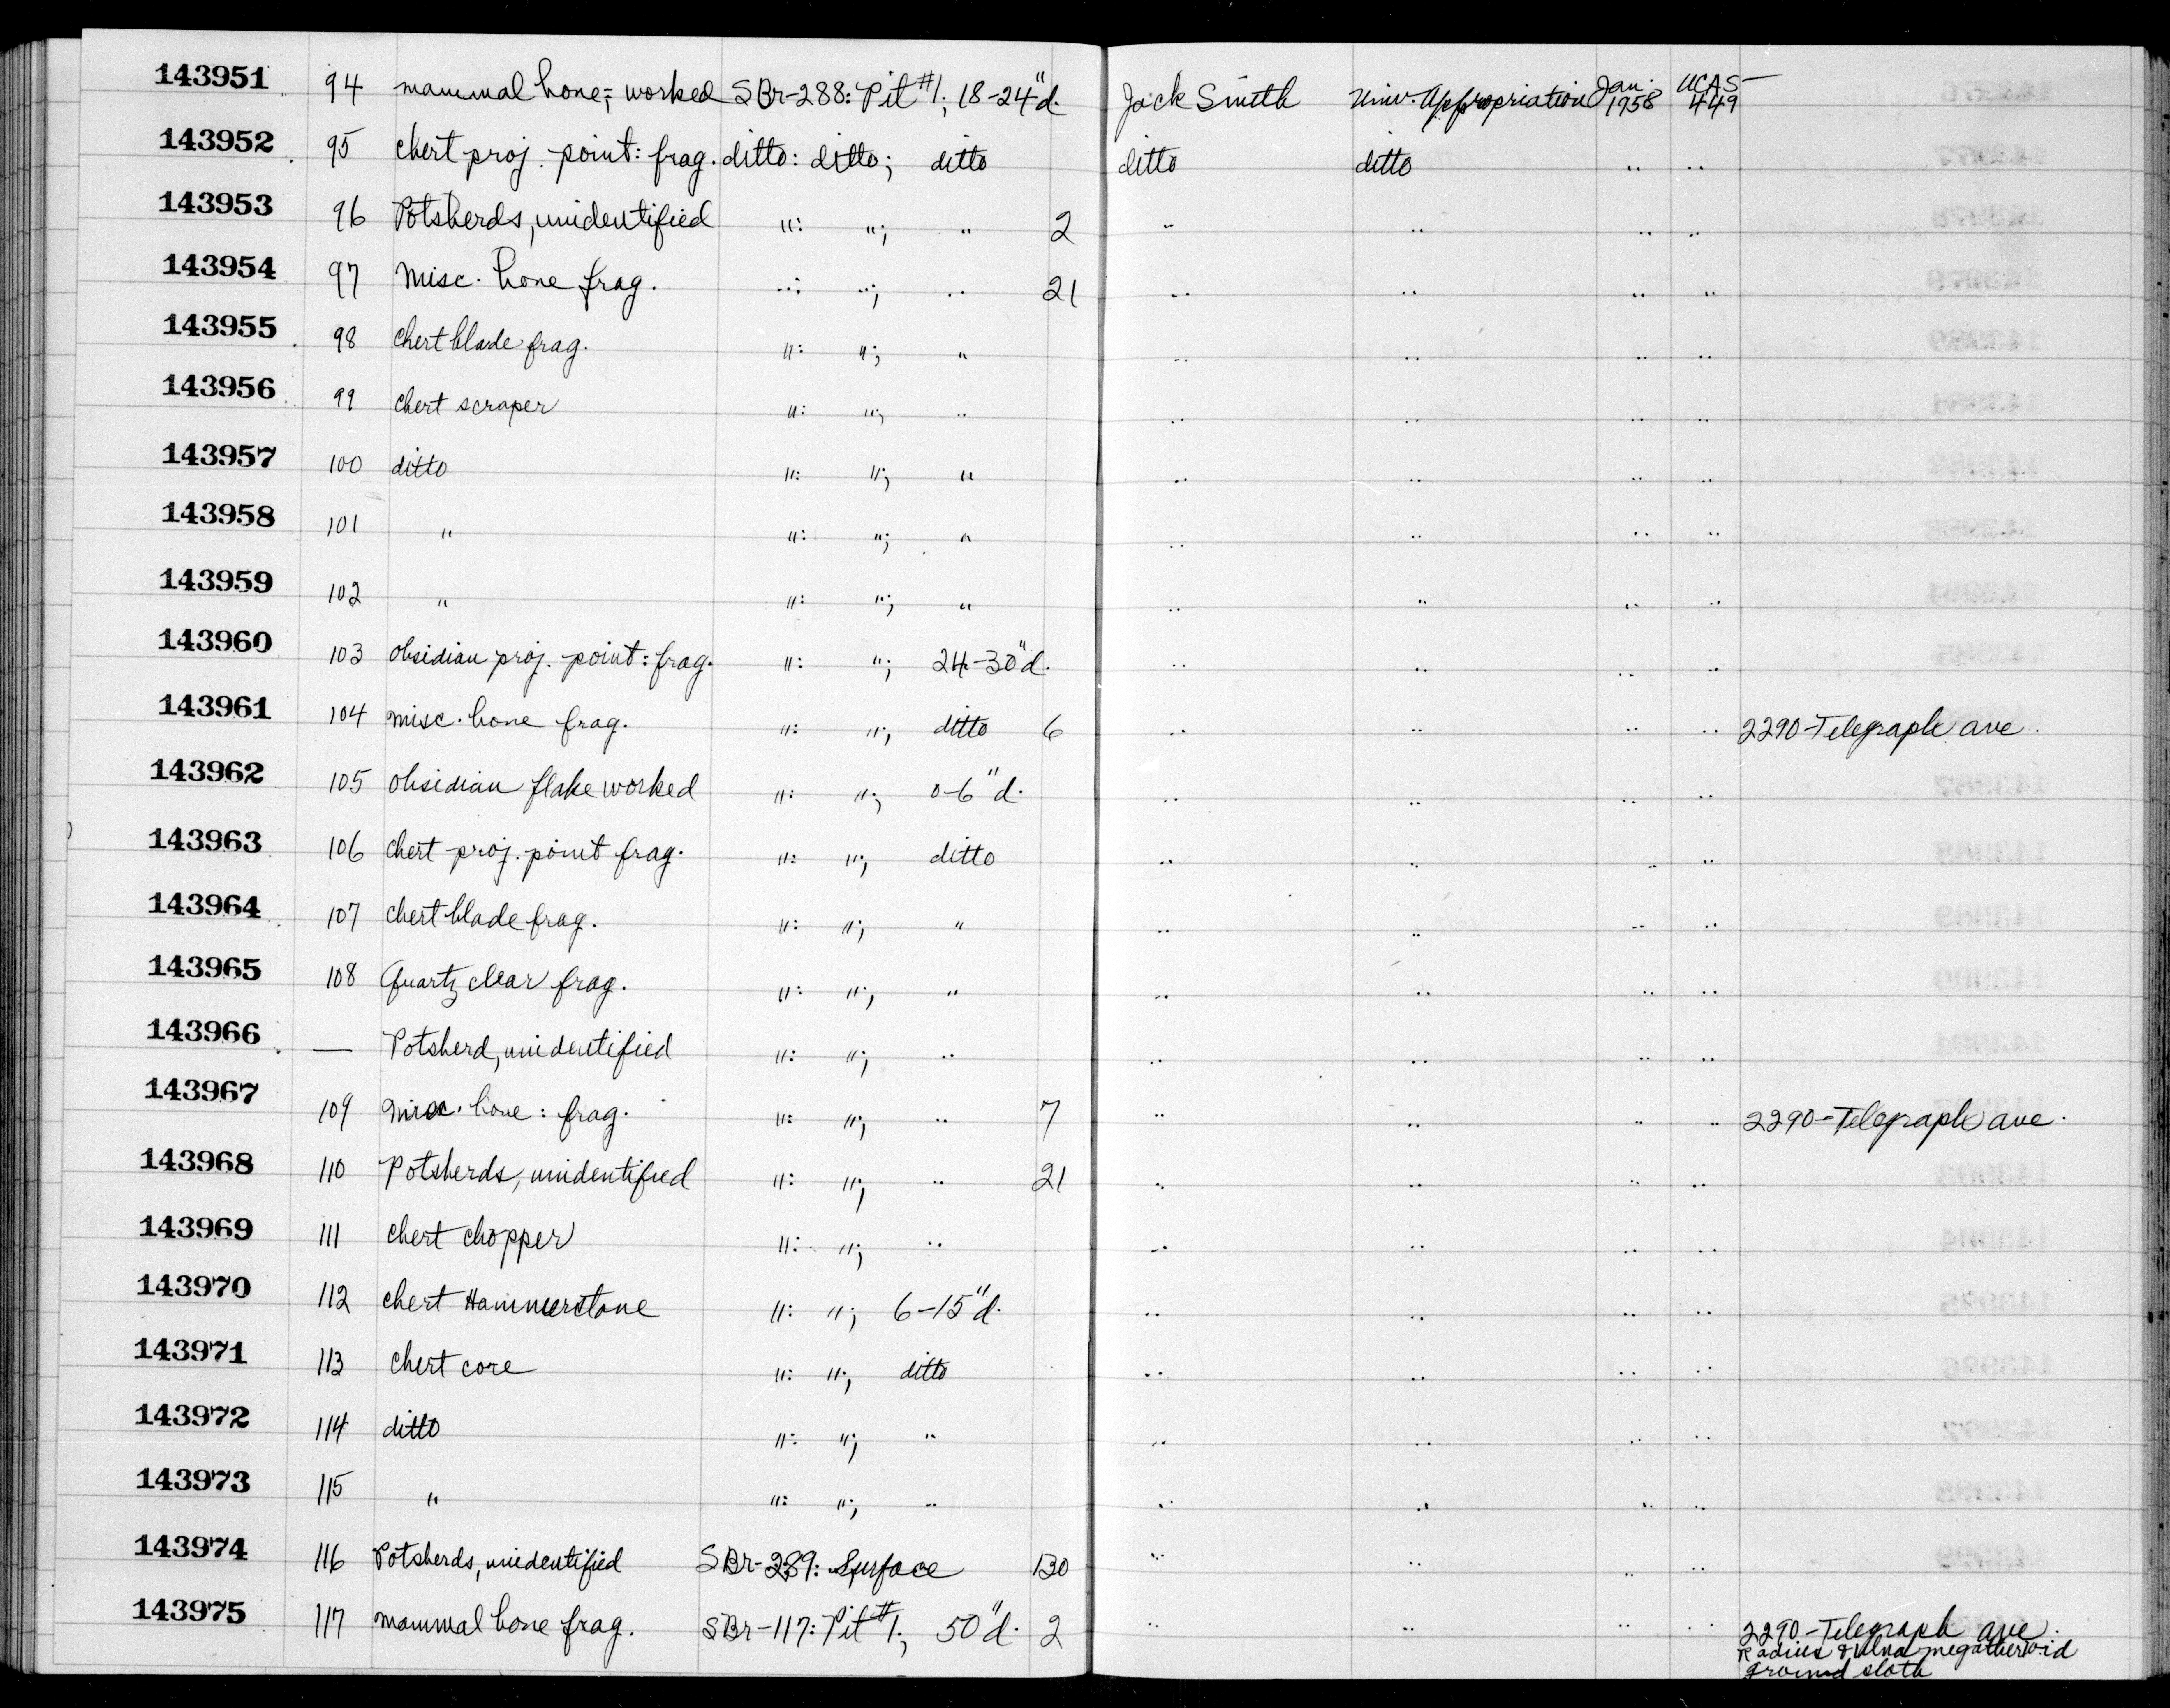 143951 94 mammal bone; worked SBr-288: Pit #1; 18-24"d. Jack Smith Univ. Appropriation Jan. 1958 UCAS-449
143952 95 chert proj. point: frag. ditto: ditto; ditto ditto ditto " "
143953 96 Potsherds, unidentified ": "; " 2 " " " "
143954 97 Misc. bone frag. ": "; " 21 " " " "
143955 98 chert blade frag. ": "; " " " " "
143956 99 chert scraper ": "; " " " " "
143957 100 ditto ": "; " " " " "
143958 101 " ": "; " " " " "
143959 102 " ": "; " " " " "
143960 103 obsidian proj. point: frag. ": "; 24-30"d. " " " "
143961 104 misc. bone frag. ": "; ditto 6 " " " " 2290-Telegraph ave.
143962 105 obsidian flake worked ": "; 0-6"d. " " " "
143963 106 chert proj. point frag. ": "; ditto " " " "
143964 107 chert blade frag. ": "; " " " " "
143965 108 Quartz clear frag. ": "; " " " " "
143966 — Potsherd, unidentified ": "; " " " " "
143967 109 misc. bone: frag. ": "; " 7 " " " " 2290-Telegraph ave.
143968 110 Potsherds, unidentified ": "; " 21 " " " "
143969 111 chert chopper ": "; " " " " "
143970 112 chert Hammerstone ": "; 6-15"d. " " " "
143971 113 chert core ": "; ditto " " " "
143972 114 ditto ": "; " " " " "
143973 115 " ": "; " " " " "
143974 116 Potsherds, unidentified SBr-289: Surface 130 " " " "
143975 117 mammal bone frag. SBr-117: Pit #1; 50"d. 2 " " " " 2290-Telegraph ave.
Radius & ulna megatheroid
ground sloth